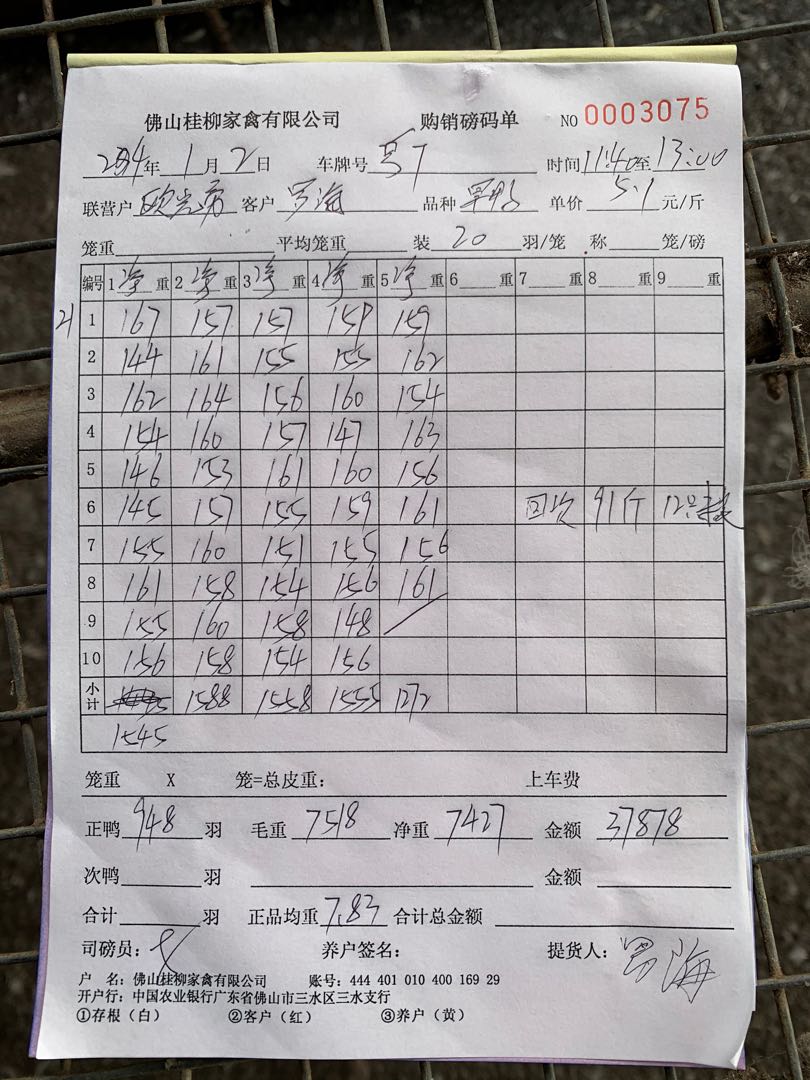 佛山桂柳家禽有限公司 购销磅码单 NO 0003075
2024年 1月 2日 车牌号 罗7 时间 11:40至 13:00
联营户 欧 客户 罗海 品种 单价 5.1 元/斤
笼重 平均笼重 装 20 羽/笼 称 笼/磅
编号 1 净 重 2 净 重 3 净 重 4 净 重 5 净 重 6 重 7 重 8 重 9 重
21 1 167 157 157 159 159
2 144 161 155 155 162
3 162 164 156 160 154
4 154 160 157 147 163
5 146 153 161 160 156
6 145 157 155 159 161 回 91斤 12只
7 155 160 151 155 156
8 161 158 154 156 161
9 155 160 158 148
10 156 158 154 156
小计 1588 1558 1555 1272
1545
笼重 X 笼=总皮重: 上车费
正鸭 948 羽 毛重 7518 净重 7427 金额 37878
次鸭 羽 金额
合计 羽 正品均重 7.83 合计总金额
司磅员: 养户签名: 提货人: 罗海
户 名: 佛山桂柳家禽有限公司 账号: 444 401 010 400 169 29
开户行: 中国农业银行广东省佛山市三水区三水支行
①存根（白） ②客户（红） ③养户（黄）